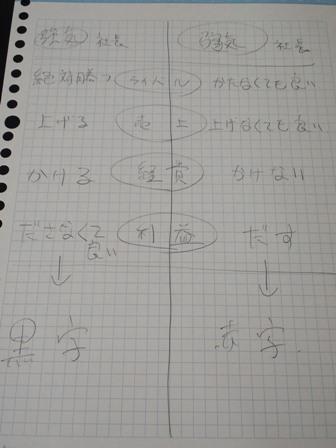 強気 社長 弱気 社長
絶対勝つ ライバル かたなくても良い
上げる 売上 上げなくても良い
かける 経費 かけない
ださなくて 利益 だす
良い
↓ ↓
黒字 赤字